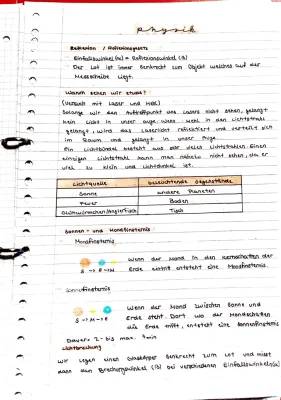 Physik
Reflexion / Reflexionsgesetz
Einfallswinkel (α) = Reflexionswinkel (β)
Der Lot ist immer Senkrecht zum Objekt welches auf der
Messscheibe liegt.
Warum sehen wir etwas?
(Versuch mit Laser und Mehl)
Solange wir den Auftreffpunkt des Lasers nicht sehen, gelangt
kein Licht in unser Auge. Wenn Mehl in den Lichtstrahl
gelangt, wird das Laserlicht reflektiert und verteilt sich
im Raum und gelangt in unser Auge.
Ein Lichtbündel besteht aus sehr vielen Lichtstrahlen. Einen
einzigen Lichtstrahl kann man nahezu nicht sehen, da er
viel zu klein und Lichtdunkel ist.
Lichtquelle beleuchtende Gegenstände
Sonne andere Planeten
Feuer Boden
Glühwürmchen/Anglerfisch Tisch
Sonnen- und Mondfinsternis
Mondfinsternis
Wenn der Mond in den Kernschatten der
S → E → M Erde eintritt entsteht eine Mondfinsternis.
Sonnenfinsternis
Wenn der Mond zwischen Sonne und
S → M → E Erde steht. Dort wo der Mondschatten
die Erde trifft, entsteht eine Sonnenfinsternis
Dauer: 2- bis max. 7min
Lichtbrechung
Wir legen einen Glaskörper Senkrecht zum Lot und misst
dann den Brechungswinkel (β) bei verschiedenen Einfallswinkeln(α)